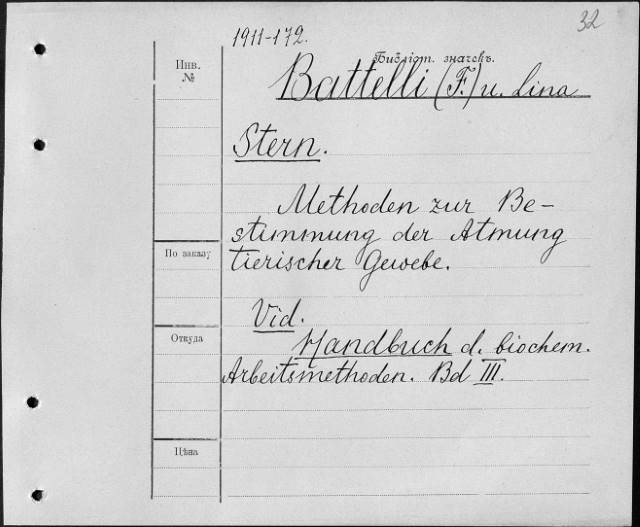 32
1911-172.
Библіот. значекъ.
Инв.
№
Battelli (F.) u. Lina
Stern.
Methoden zur Be-
stimmung der Atmung
По заказу
tierischer Gewebe.
Vid.
Откуда
Handbuch d. biochem.
Arbeitsmethoden. Bd III.
Цѣна